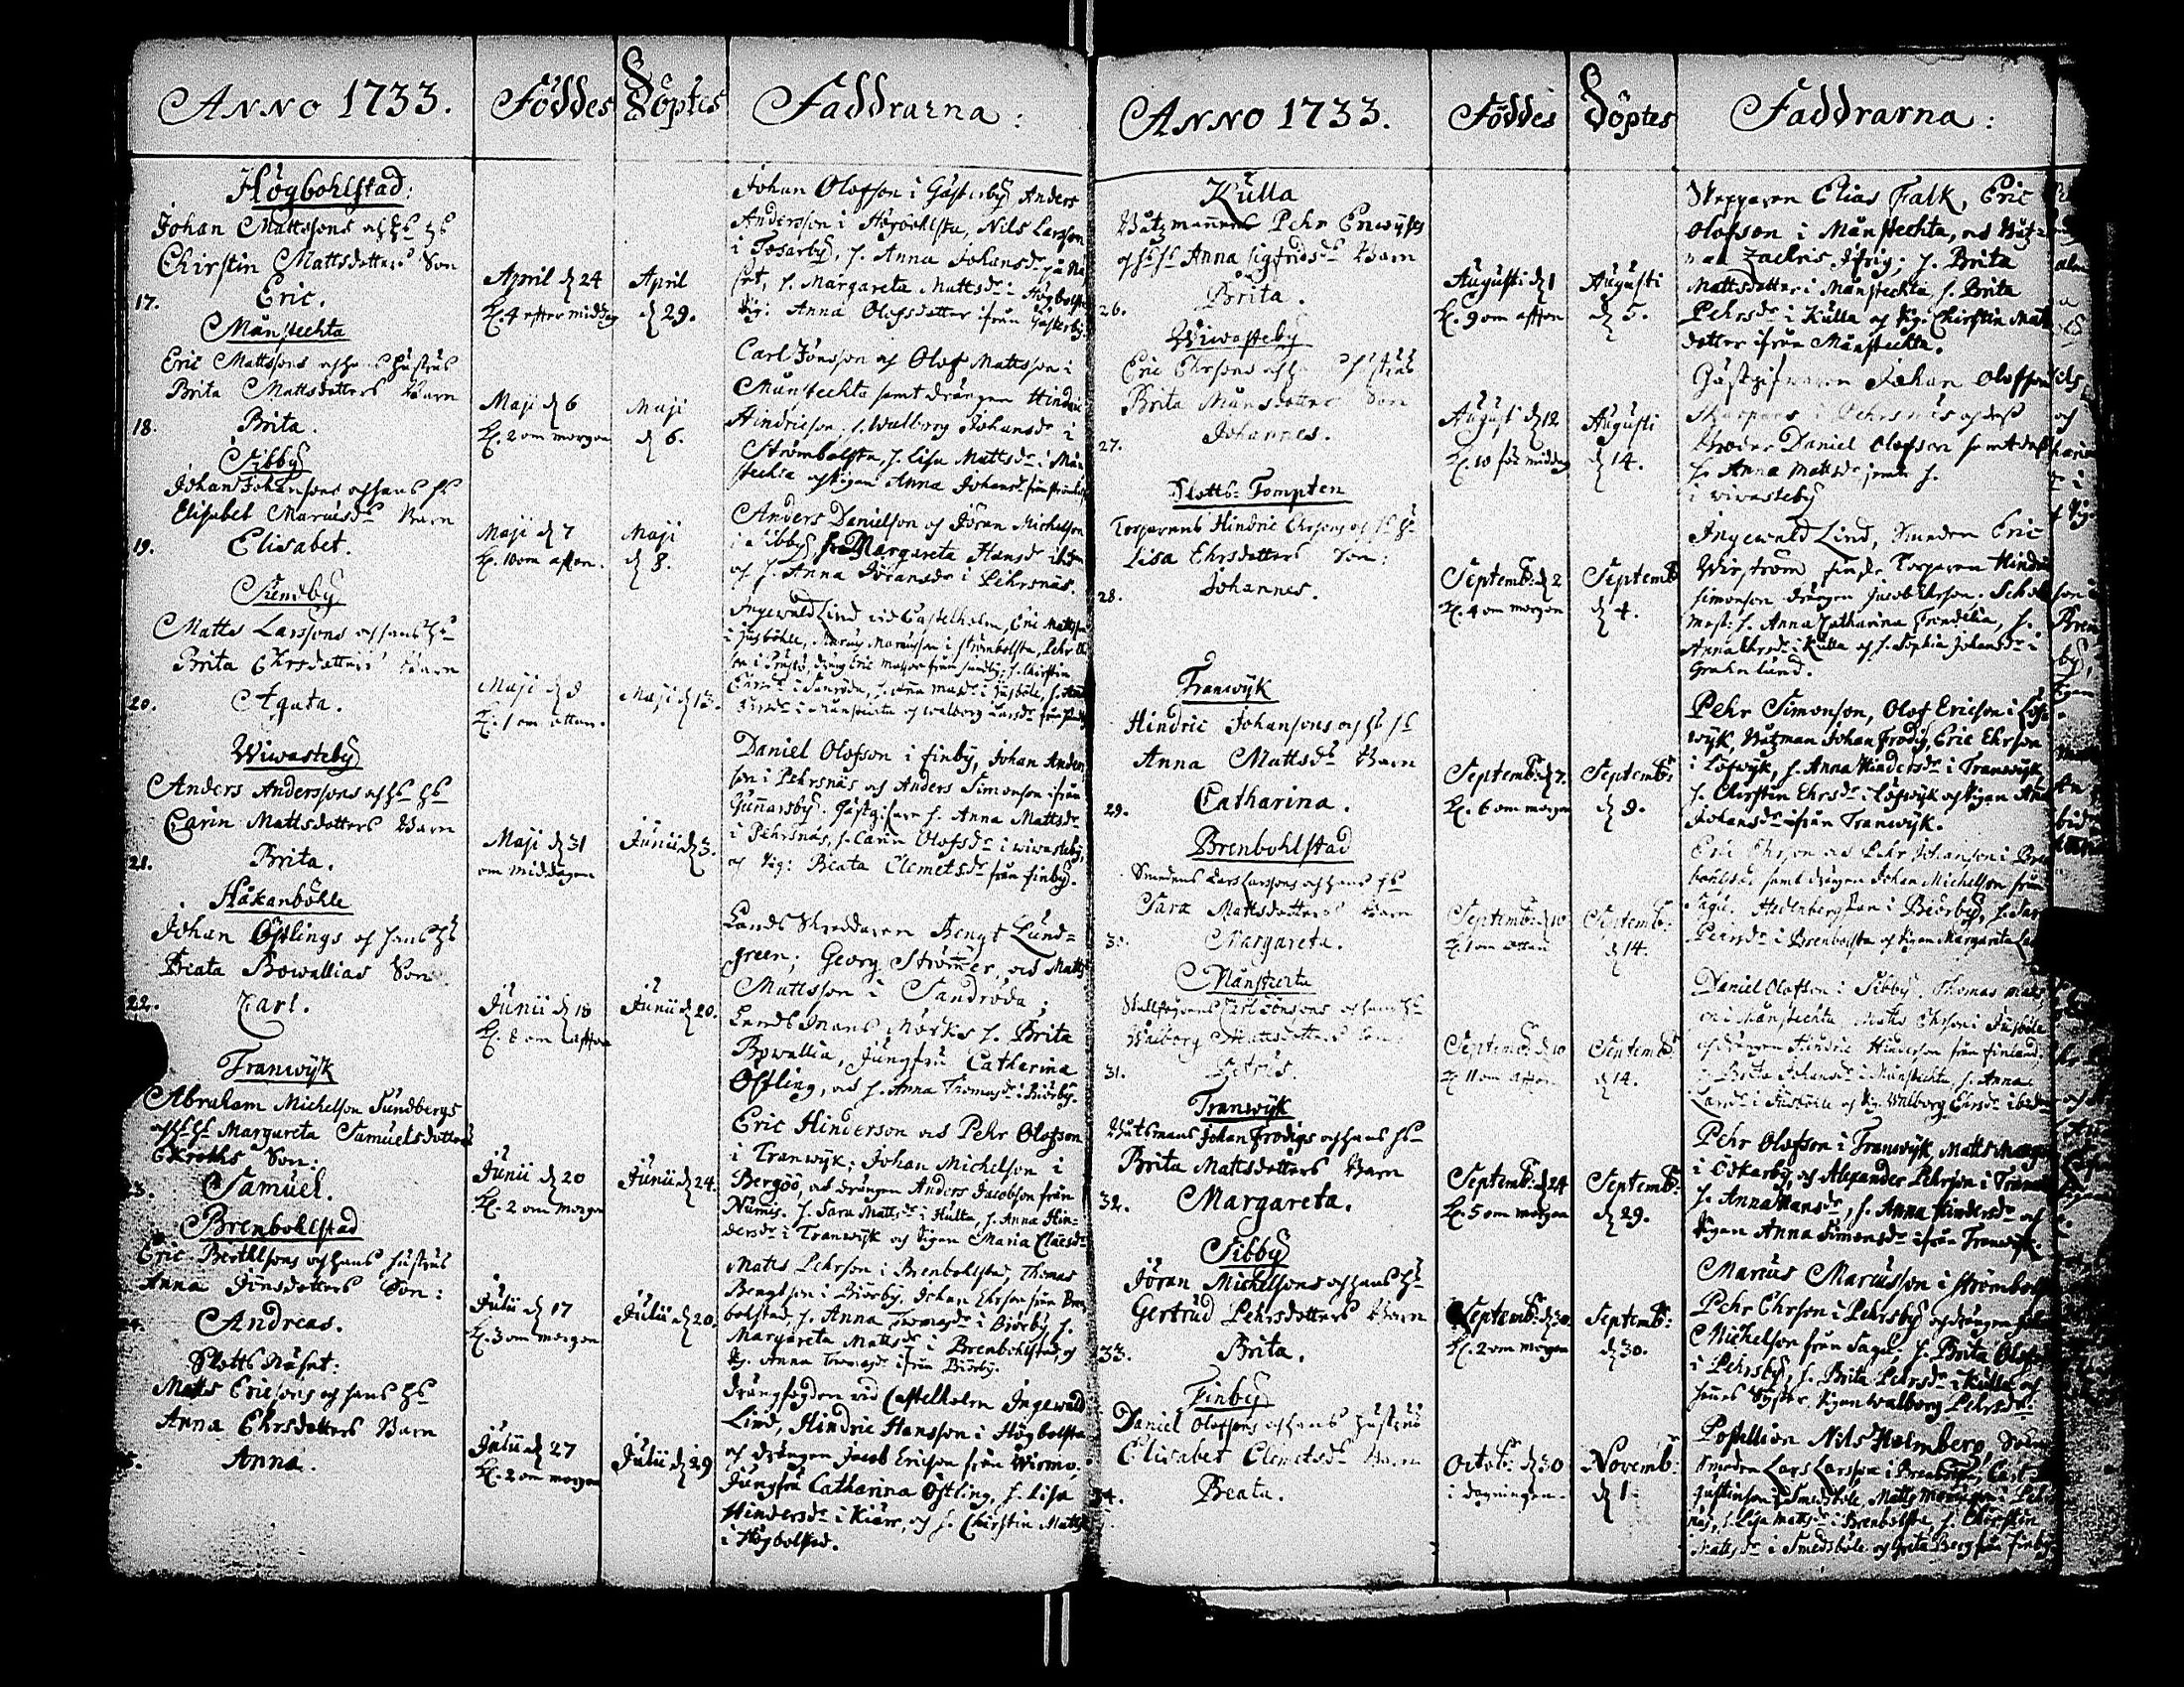 ANNO 1733.
Föddes
Döptes
Faddrarna:
Högbohlstad:
Johan Mattssons och hs hs
Chirstin Mattsdotters Son
17. Eric.
April d 24
Kl. 4 efter middag
April
d 29.
Johan Olofson i Gästerby Anders
Andersson i Högbohlsta, Nils Larsson
i Tosarby, h. Anna Johansdr på Nä
set, h. Margareta Mattsdr i Högbolsta
Pig: Anna Olofsdotter ifrån Gästerby.
Månstechta
Eric Mattssons och hans hustrus
Brita Mattsdotters Barn
18. Brita.
Maji d 6
Kl. 2 om morgon
Maji
d 6.
Carl Jönsson och Olof Mattsson i
Månstechta samt drängen Hindric
Hindricson. h. Walborg Johansdr i
Strömbolsta, h. Lisa Mattsdr i Mån
stechta och Pigan Anna Johansdr från
Sibby
Johan Johansons och hans hs
Elisabet Marcusdrs Barn
19. Elisabet.
Maji d 7
Kl. 10 om afton.
Maji
d 8.
Anders Danielson och Jöran Michelson
i Sibby, Margareta Hansdr ibidem
och h. Anna Jöransdr i Pehrsnäs.
Sundby
Matts Larssons och hans hs
Brita Ehrsdotters Barn
20. Agata.
Maji d 9
Kl. 1 om ottan.
Maji d 13.
Ingewald Lind vid Castelholm, Eric Mattsson
i Jusböhle, Marcus Marcusson i Strömbolsta, Pehr
Wiwasteby
Anders Anderssons och hs hs
Carin Mattsdotters Barn
21. Brita.
Maji d 31
om middagen
Junii d 3.
Daniel Olofsson i Finby, Johan Anders
son i Pehrsnäs och Anders Simonson ifrån
Gunnarsby. Gästgifvare h. Anna Mattsdr
i Pehrsnäs, h. Carin Olofsdr i Wiwasteby,
och Pig: Beata Clemetsdr från Finby.
Håkanböhle
Johan Östlings och hans hs
Beata Bowallias Son
22. Carl.
Junii d 18
Kl. 8 om afton
Junii d 20.
Lands Skreddaren Bengt Lund=
green; Georg Strömer, och Matts
Mattsson i Sandröda:
Lands Mans Mörks h. Brita
Bowallia, Jungfru Catherina
Östling, och h. Anna Thomasdr i Biörby.
Tranwijk
Abraham Michelson Sundbergs
och hs hs Margareta Samuelsdotters
Ekroths Son:
23. Samuel.
Junii d 20
Kl. 2 om morgon
Junii d 24.
Eric Hinderson och Pehr Olofson
i Tranwijk; Johan Michelson i
Bergöö, och drängen Anders Jacobson från
Numis. h. Sara Mattsdr i Hulta, h. Anna Hin=
dersdr i Tranwijk och Pigan Maria Claesdr
Brenbohlstad
Eric Berthlsons och hans hustrus
Anna Jönsdotters Son:
Andreas.
Julii d 17
Kl. 3 om morgon
Julii d 20.
Matts Pehrson i Brenbohlstad, Thomas
Bengtson i Biörby, Johan Ehrson från Bren
bolstad, h. Anna Thomasdr i Biörby, h.
Margareta Mattsdr i Brenbohlstad, och
Pig. Anna Thomasdr ifrån Biörby.
Slotts Näset:
Matts Ericsons och hans hs
Anna Ehrsdotters Barn
Anna.
Julii d 27
Kl. 2 om morgon
Julii d 29
Drängfogden vid Castelholm Ingewald
Lind, Hindric Hansson i Högbolsta
och drängen Jacob Ericson från Wirmo,
Jungfru Catharina Östling, h. Lisa
Hindersdr i Kiärr, och h. Chirstin Mattsdr
i Högbolstad.
ANNO 1733.
Föddes
Döptes
Faddrarna:
Kulla
Båtzmannens Pehr Enwijks
och hs hs Anna Sigfridsdrs Barn
26. Brita.
Augusti d 1
Kl. 9 om afton
Augusti
d 5.
Skepparen Elias Falk, Eric
Olofson i Månstechta, och Båtz
man Zachris ; h. Brita
Mattsdotter i Månstechta, h. Brita
Pehrsdr i Kulla och Pig: Chirstin Matts
dotter ifrån Månstechta.
Wiwasteby
Eric Ehrsons och hustrus
Brita Månsdotters Son
27. Johannes.
August d 12
Kl. 10 för middag
Augusti
d 14.
Gästgifwaren Johan Olofsson
i Pehrsnäs och dess
Broder Daniel Olofson samt dess
h. Anna Mattsdr
i Wiwasteby
Slotts=Tompten
Torparens Hindric Ehrsons och hs hs
Lisa Ehrsdotters Son:
28. Johannes.
Septemb: d 2
Kl. 4 om morgon
Septemb:
d 4.
Ingewald Lind, Smeden Eric
Wiström Torparen Hindric
Simonson drängen Jacob Ehrson.
h. Anna Catharina Frendelia, h.
Anna Ehrsdr i Kulla och h. Sophia Johansdr i
Grahnlund.
Tranwijk
Hindric Johansons och hs hs
Anna Mattsdrs Barn
29. Catharina.
Septemb: d 7.
Kl. 6 om morgon
Septemb:
d 9.
Pehr Simonson, Olof Ericson i Löf
wijk, Båtzman Johan Frodig, Eric Ehrson
i Löfwijk, h. Anna Hindersdr i Tranwijk,
h. Chirstin Ehrsdr i Löfwijk och Pigan Anna
Johansdr ifrån Tranwijk.
Brenbohlstad
Smedens Lars Larssons och hans hs
Sara Mattsdotters Barn
Margareta.
Septemb: d 10
Kl. 1 om ottan
Septemb:
d 14.
Eric Ehrson och Pehr Johanson i Bren
bohlstad samt drängen Johan Michelson från
Sagu. i Beörby, h.
Pehrsdr i Brenbolsta och Pigan Margareta
Månstecta
Carl Jönsons och hans hs
Walborg Mattsdotters Son
31. Petrus.
Septemb: d 10
Kl. 11 om afton
Septemb:
d 14.
Daniel Olofson i Sibby. Thomas
i Månstechta, Matts Ehrson i Jusböle
och drängen Hindric Hinderson från Finland,
h. Brita Johansdr i Månstechta, h. Anna
Larsdr i Jusböhle och Pig. Walborg Ehrsdr ibidem
Tranwijk
Båtsmans Johan Frodigs och hans hs
Brita Mattsdotters Barn
32. Margareta.
Septemb: d 24
Kl. 5 om morgon
Septemb:
d 29.
Pehr Olofson i Tranwijk, Matts
i Ödkarby, och Alexander Pehrson i Tranwijk
h. Anna Hansdr, h. Anna Hindersdr och
Pigan Anna Simonsdr ifrån Tranwijk.
Sibby
Jöran Michelsons och hans hs
Gertrud Pehrsdotters Barn
33. Brita.
Septemb: d 30
Kl. 2 om morgon
Septemb:
d 30.
Marcus Marcusson i Strömbolst
Pehr Ehrson i Pehrsby och drängen
Michelson från Sagu. h. Brita Olofsdr
i Pehrsby, h. Brita Pehrsdr i Kulla och
hennes Syster, Pigan Walborg Pehrsdr:
Finby
Daniel Olofsons och hans hustrus
Elisabet Clemetsdrs Barn
34. Beata.
Octob: d 30
i dagningen.
Novemb:
d 1.
Postillion Nils Holmberg,
Smeden Lars Larsson i Brenbolsta, Carl
Justinson i Smedsböle, Matts
näs, h. Lisa Mattsdr i Brenbolsta, h. Chirstin
Mattsdr i Smedsböle och Greta Berg från Finby.